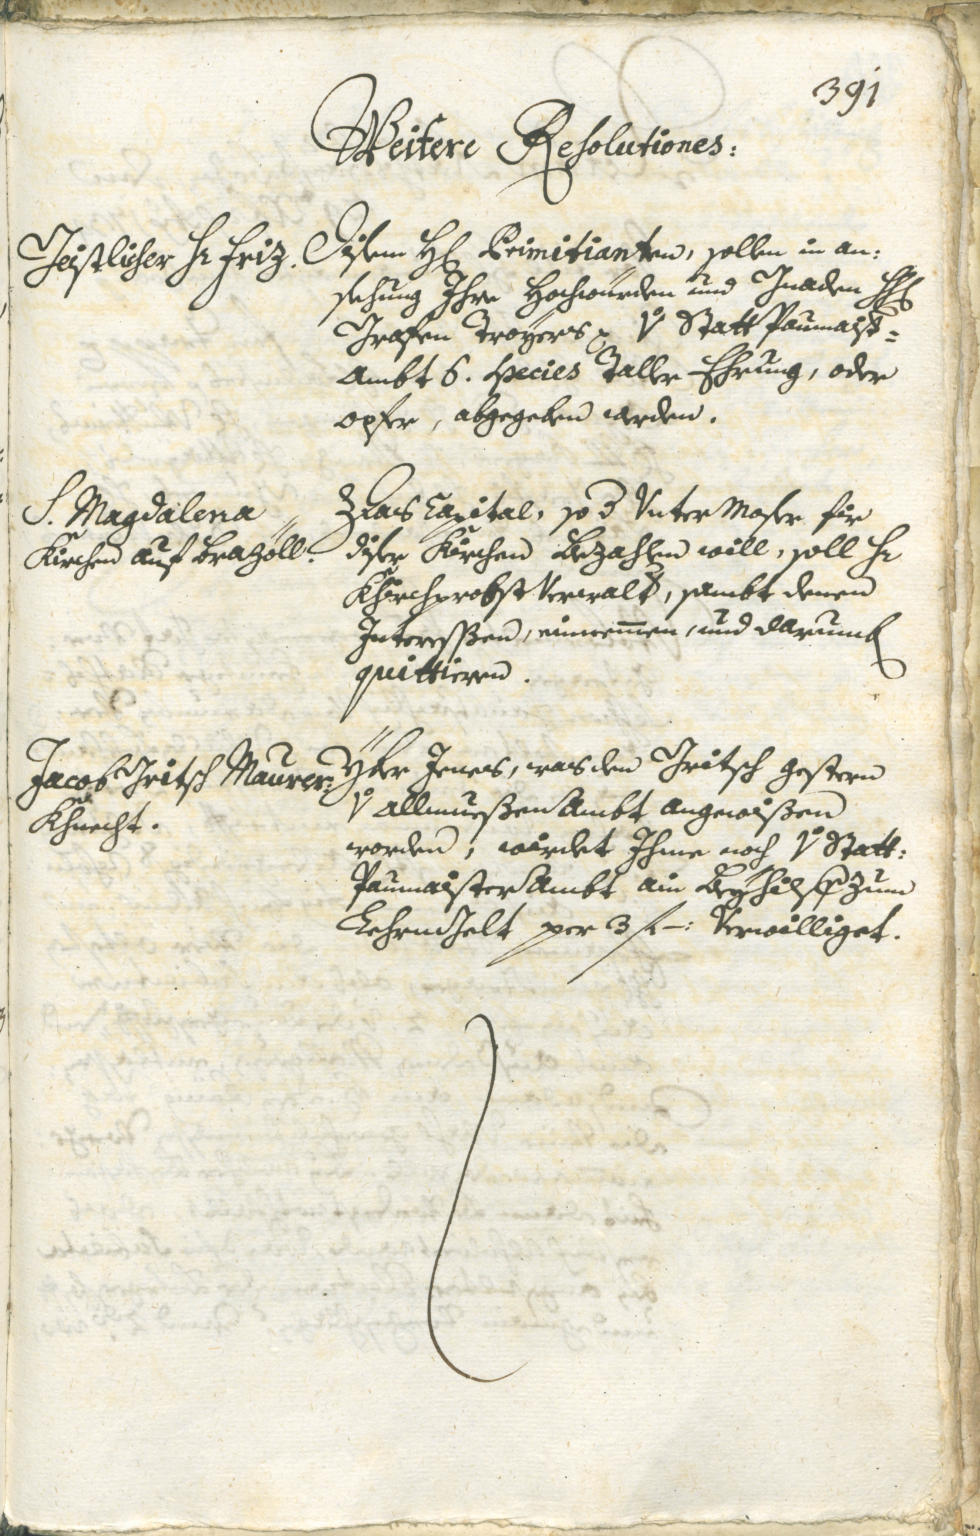 391
Weitere Resolutiones:
Geistlicher H: Friz.
Disem H: Primitianten, sollen in an:
sechung Ihro Hochwürden und Gnaden H:
Grafen Troyers V Statt Paumaist=
Ambt 6. Species Taller Ehrung, oder
opfer, abgegeben werden.
S. Magdalena
Kirchen auf Brazöll.
Das Capital, so d Unter Moser für
diser Kirchen Bezahlen will, soll H:
Khirchprobst Verwalt, sambt denen
Interessen, einnemen, und darumb
quittieren.
Jacob Gritsch Maurer=
Khnecht.
Yber Jenes, was dem Gritsch gestern
V Allmuessen Ambt angewisen
worden, wirdet Ihme noch V Statt:
Paumaister Ambt ain Beyhilf zum
Lehrn Gelt per 3 f –: Verwilliget.